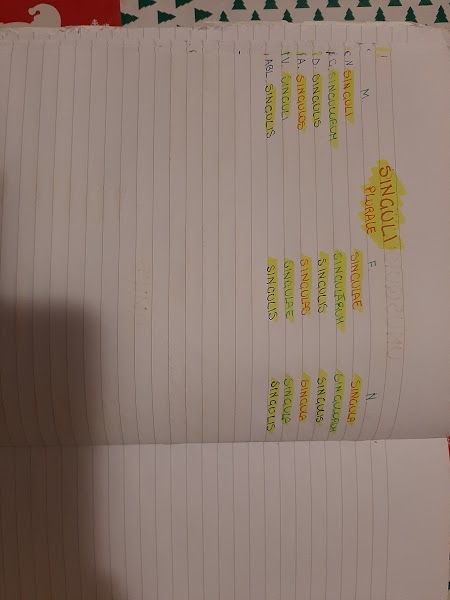 SINGULI
PLURALE
M F N
N. SINGULI SINGULAE SINGULA
G. SINGULORUM SINGULARUM SINGULORUM
D. SINGULIS SINGULIS SINGULIS
A. SINGULOS SINGULAS SINGULA
V. SINGULI SINGULAE SINGULA
ABL. SINGULIS SINGULIS SINGULIS